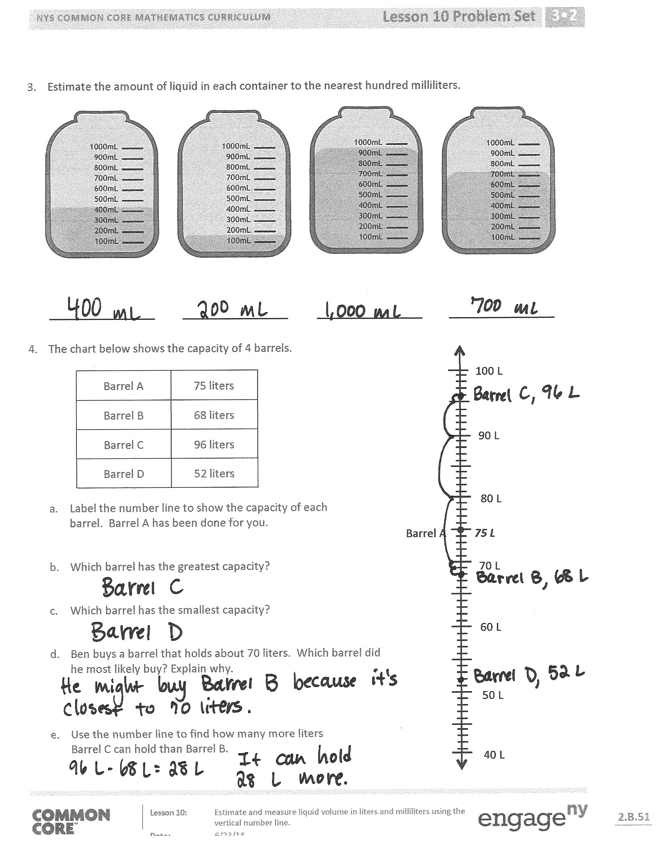 NYS COMMON CORE MATHEMATICS CURRICULUM
Lesson 10 Problem Set 3•2
3. Estimate the amount of liquid in each container to the nearest hundred milliliters.
1000mL 1000mL 1000mL 1000mL
900mL 900mL 900mL 900mL
800mL 800mL 800mL 800mL
700mL 700mL 700mL 700mL
600mL 600mL 600mL 600mL
500mL 500mL 500mL 500mL
400mL 400mL 400mL 400mL
300mL 300mL 300mL 300mL
200mL 200mL 200mL 200mL
100mL 100mL 100mL 100mL
400 mL 200 mL 1,000 mL 700 mL
4. The chart below shows the capacity of 4 barrels.
Barrel A 75 liters
Barrel B 68 liters
Barrel C 96 liters
Barrel D 52 liters
100 L
Barrel C, 96 L
90 L
80 L
Barrel A 75 L
70 L
Barrel B, 68 L
60 L
Barrel D, 52 L
50 L
40 L
a. Label the number line to show the capacity of each
barrel. Barrel A has been done for you.
b. Which barrel has the greatest capacity?
Barrel C
c. Which barrel has the smallest capacity?
Barrel D
d. Ben buys a barrel that holds about 70 liters. Which barrel did
he most likely buy? Explain why.
He might buy Barrel B because it's
closest to 70 liters.
e. Use the number line to find how many more liters
Barrel C can hold than Barrel B.
96 L - 68 L = 28 L
It can hold
28 L more.
COMMON
CORE™
Lesson 10:
Estimate and measure liquid volume in liters and milliliters using the
vertical number line.
engage ny
2.B.51